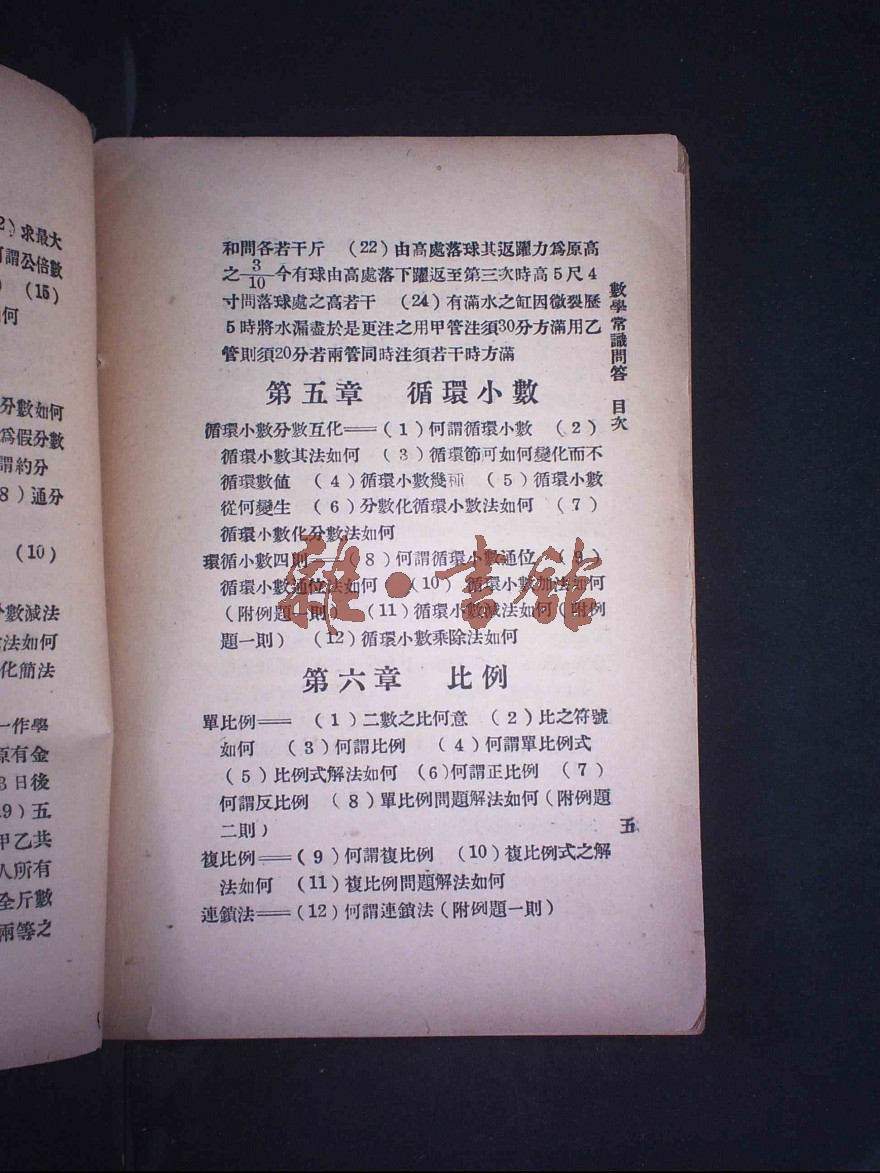 2)求最大
謂公倍數
(15)
何
分數如何
爲假分數
謂約分
8)通分
(10)
數減法
法如何
化簡法
一作學
原有金
3日後
9)五
甲乙共
人所有
全斤數
兩等之
和問各若干斤 (22)由高處落球其返躍力爲原高
之3/10今有球由高處落下躍返至第三次時高5尺4
寸問落球處之高若干 (24)有滿水之缸因微裂歷
5時將水漏盡於是更注之用甲管注須30分方滿用乙
管則須20分若兩管同時注須若干時方滿
第五章 循環小數
循環小數分數互化══(1)何謂循環小數 (2)
循環小數其法如何 (3)循環節可如何變化而不
循環數值 (4)循環小數幾種 (5)循環小數
從何變生 (6)分數化循環小數法如何 (7)
循環小數化分數法如何
環循小數四則══(8)何謂循環小數通位 (9)
循環小數通位法如何 (10)循環小數加法如何
(附例題一則) (11)循環小數減法如何(附例
題一則) (12)循環小數乘除法如何
第六章 比例
單比例══ (1)二數之比何意 (2)比之符號
如何 (3)何謂比例 (4)何謂單比例式
(5)比例式解法如何 (6)何謂正比例 (7)
何謂反比例 (8)單比例問題解法如何(附例題
二則)
複比例══(9)何謂複比例 (10)複比例式之解
法如何 (11)複比例問題解法如何
連鎖法══(12)何謂連鎖法(附例題一則)
數學常識問答 目次
五
雜·書館